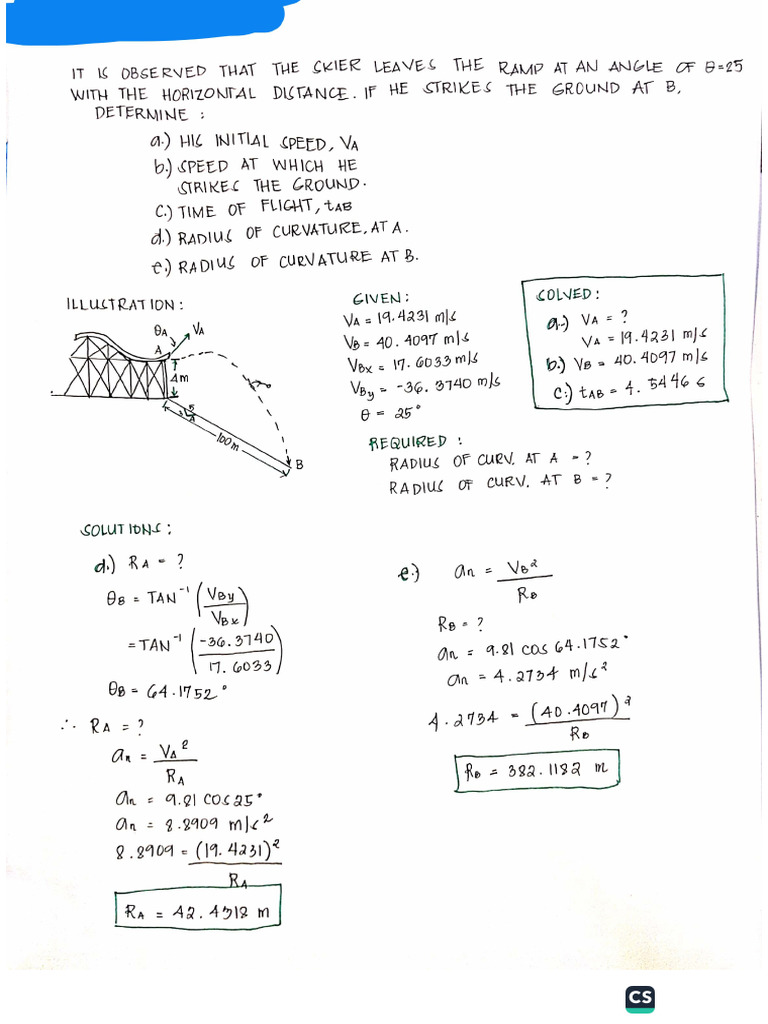 IT IS OBSERVED THAT THE SKIER LEAVES THE RAMP AT AN ANGLE OF θ=25
WITH THE HORIZONTAL DISTANCE. IF HE STRIKES THE GROUND AT B,
DETERMINE :
a.) HIS INITIAL SPEED, VA
b.) SPEED AT WHICH HE
STRIKES THE GROUND.
c.) TIME OF FLIGHT, tAB
d.) RADIUS OF CURVATURE, AT A.
e.) RADIUS OF CURVATURE AT B.
ILLUSTRATION :
θA
VA
A
4m
5
100m
B
GIVEN :
VA = 19.4231 m/s
VB = 40.4097 m/s
VBx = 17.6033 m/s
VBy = -36.3740 m/s
θ = 25°
SOLVED :
a.) VA = ?
VA = 19.4231 m/s
b.) VB = 40.4097 m/s
c.) tAB = 4.5446 s
REQUIRED :
RADIUS OF CURV. AT A = ?
RADIUS OF CURV. AT B = ?
SOLUTIONS :
d.) RA = ?
θB = TAN⁻¹ (VBy / VBx)
= TAN⁻¹ (-36.3740 / 17.6033)
θB = 64.1752°
∴ RA = ?
an = VA² / RA
an = 9.81 COS 25°
an = 8.8909 m/s²
8.8909 = (19.4231)² / RA
RA = 42.4318 m
e.) an = VB² / RB
RB = ?
an = 9.81 cos 64.1752°
an = 4.2734 m/s²
4.2734 = (40.4097)² / RB
RB = 382.1182 m
CS